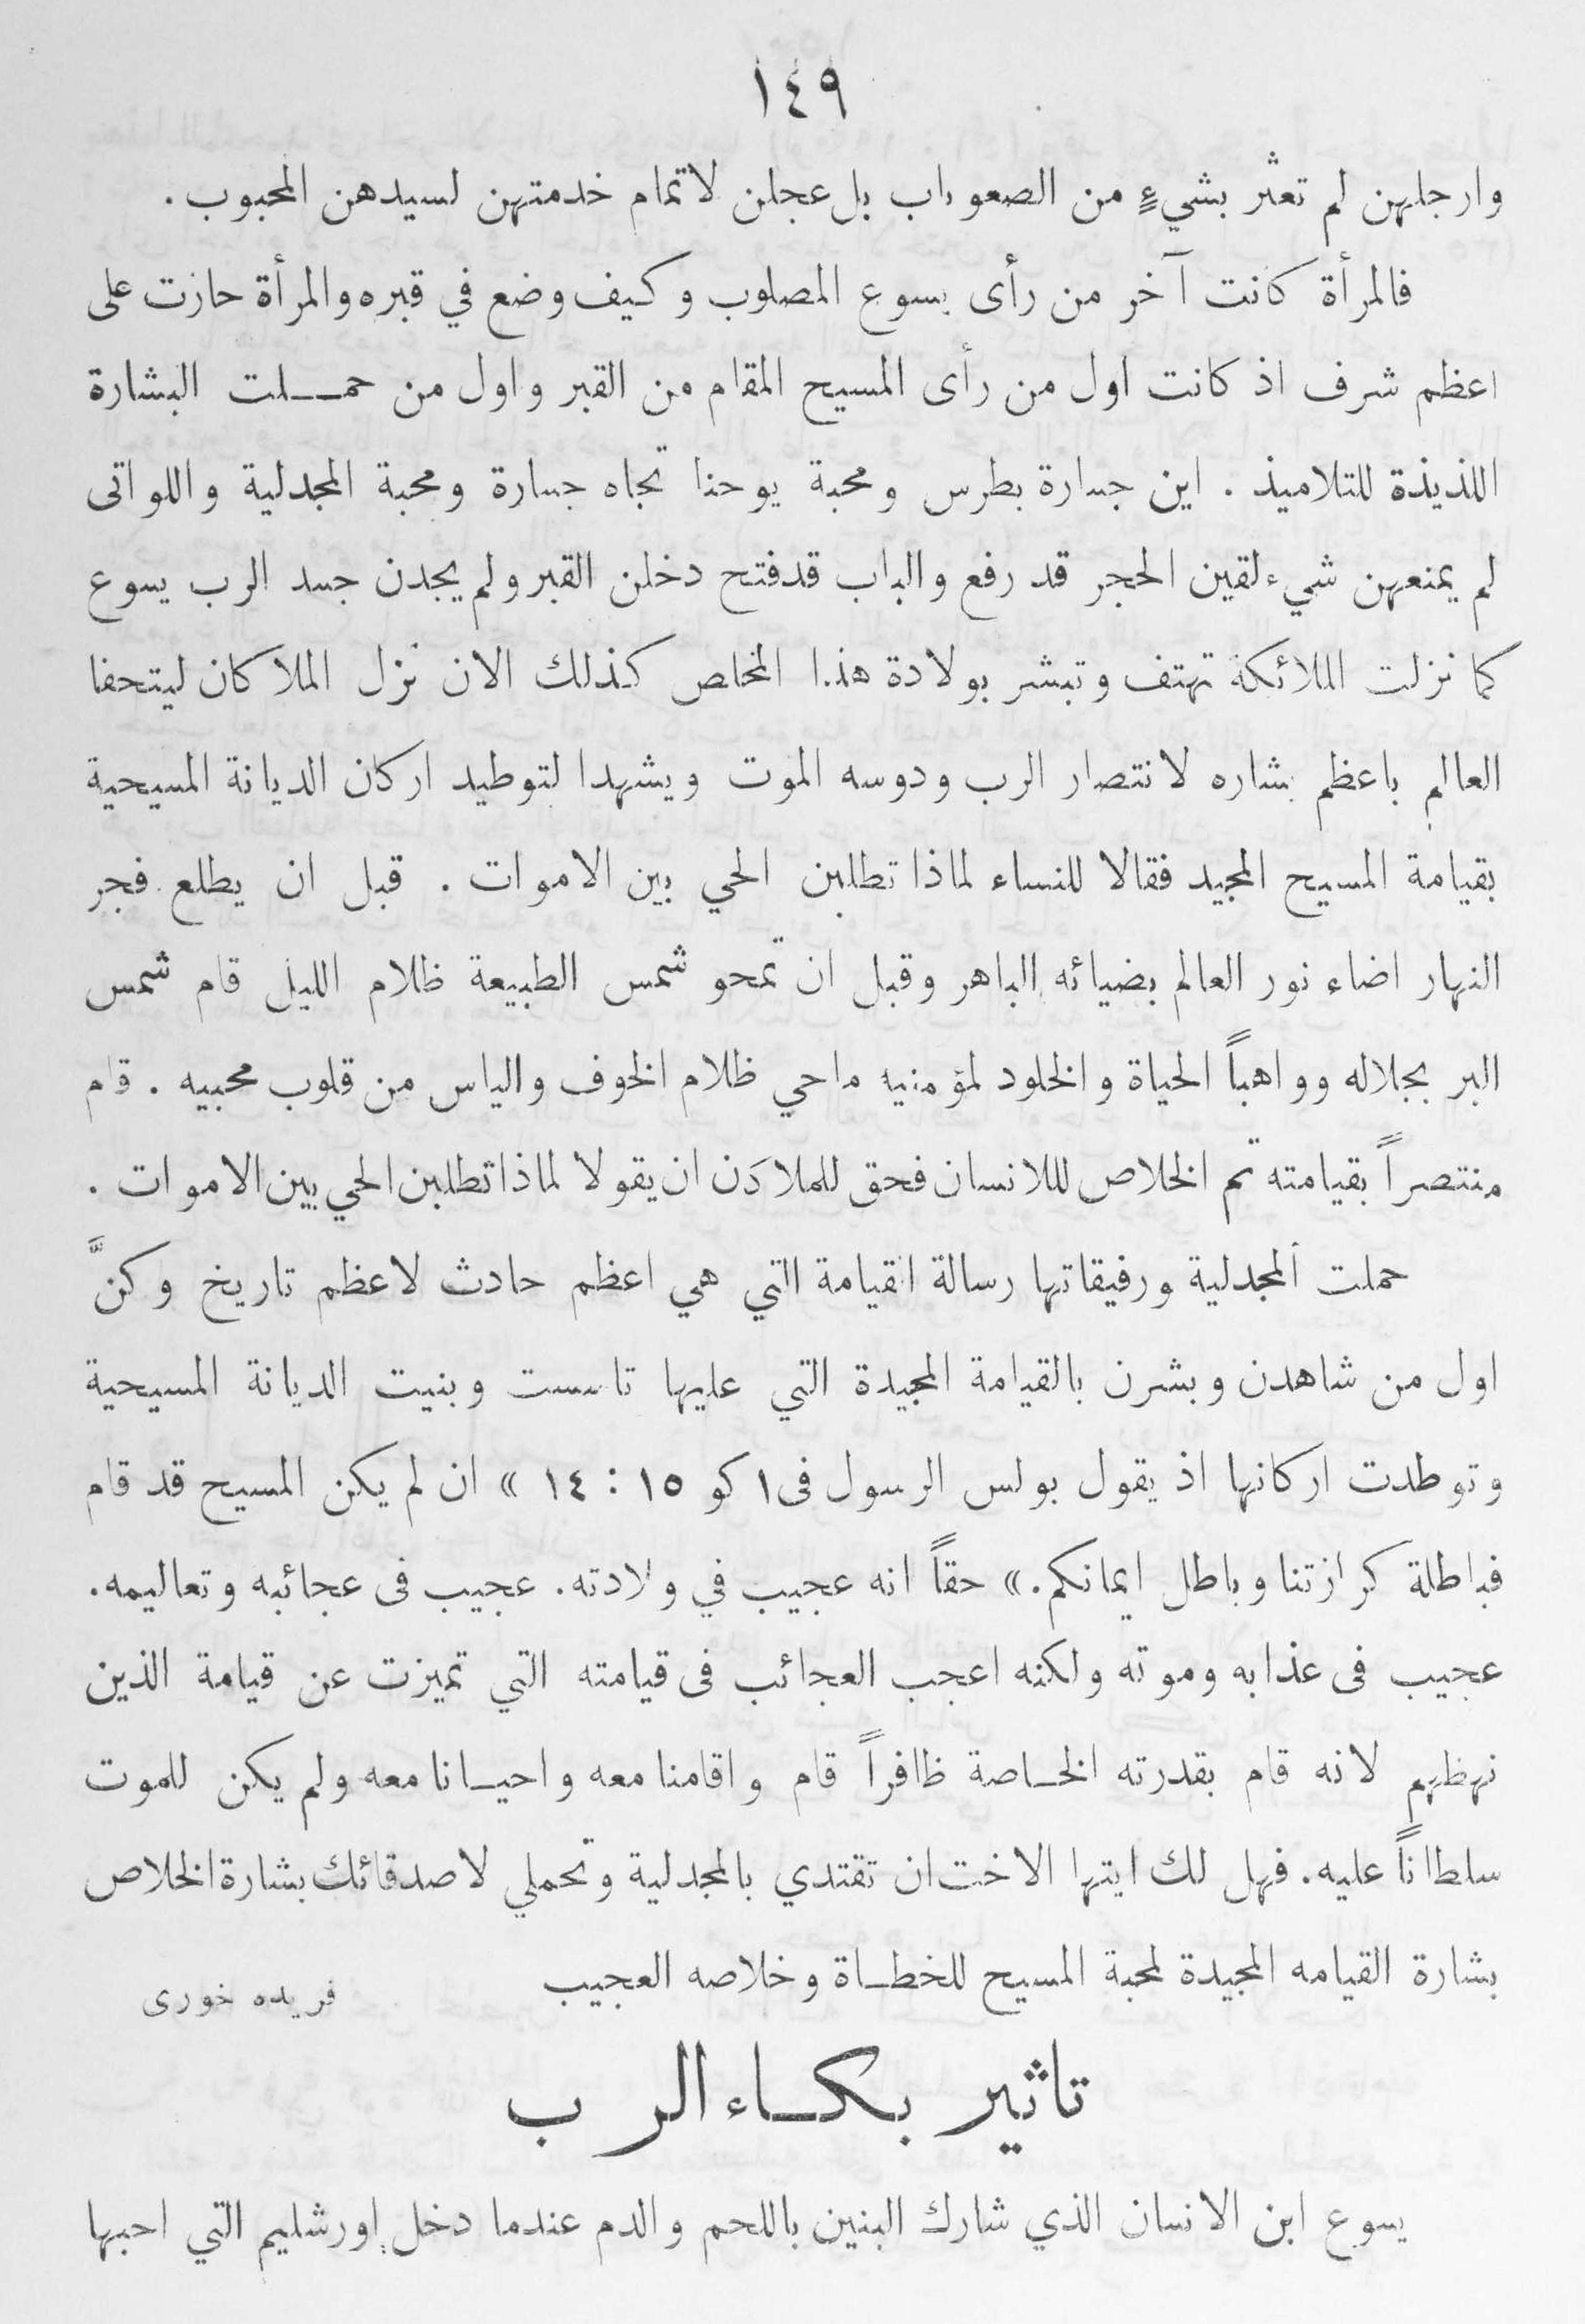 ١٤٩
وارجلهن لم تعثر بشيءٍ من الصعوبات بل عجلن لاتمام خدمتهن لسيدهن المحبوب .
فالمرأة كانت آخر من رأى يسوع المصلوب وكيف وضع في قبره والمرأة حازت على
اعظم شرف اذ كانت اول من رأى المسيح المقام من القبر واول من حمـــلت البشارة
اللذيذة للتلاميذ . اين جسارة بطرس ومحبة يوحنا تجاه جسارة ومحبة المجدلية واللواتى
لم يمنعهن شيء لقين الحجر قد رفع والباب قد فتح دخلن القبر ولم يجدن جسد الرب يسوع
كما نزلت الملائكة تهتف وتبشر بولادة هذا المخلص كذلك الان نزل الملاكان ليتحفا
العالم باعظم بشاره لانتصار الرب ودوسه الموت ويشهدا لتوطيد اركان الديانة المسيحية
بقيامة المسيح المجيد فقالا للنساء لماذا تطلبن الحي بين الاموات . قبل ان يطلع فجر
النهار اضاء نور العالم بضيائه الباهر وقبل ان تمحو شمس الطبيعة ظلام الليل قام شمس
البر بجلاله وواهباً الحياة والخلود لمؤمنيه ماحي ظلام الخوف والياس من قلوب محبيه . قام
منتصراً بقيامته تم الخلاص لللانسان فحق للملاكن ان يقولا لماذا تطلبن الحي بين الاموات .
حملت المجدلية ورفيقاتها رسالة القيامة التي هي اعظم حادث لاعظم تاريخ وكنَّ
اول من شاهدن وبشرن بالقيامة المجيدة التي عليها تاسست وبنيت الديانة المسيحية
وتوطدت اركانها اذ يقول بولس الرسول فى ١ كو ١٥ : ١٤ » ان لم يكن المسيح قد قام
فباطلة كرازتنا وباطل ايمانكم.» حقاً انه عجيب في ولادته. عجيب فى عجائبه وتعاليمه.
عجيب فى عذابه وموته ولكنه اعجب العجائب فى قيامته التي تميزت عن قيامة الذين
نهظهم لانه قام بقدرته الخـاصة ظافراً قام واقامنا معه واحيـانا معه ولم يكن للموت
سلطاناً عليه. فهل لك ايتها الاخت ان تقتدي بالمجدلية وتحملي لاصدقائك بشارة الخلاص
بشارة القيامه المجيدة لمحبة المسيح للخطـاة وخلاصه العجيب
فريده خورى
تاثير بكـاء الرب
يسوع ابن الانسان الذي شارك البنين باللحم والدم عندما دخل اورشليم التي احبها